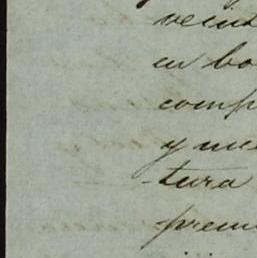 veint
en bo
comp
y me
tura
prem